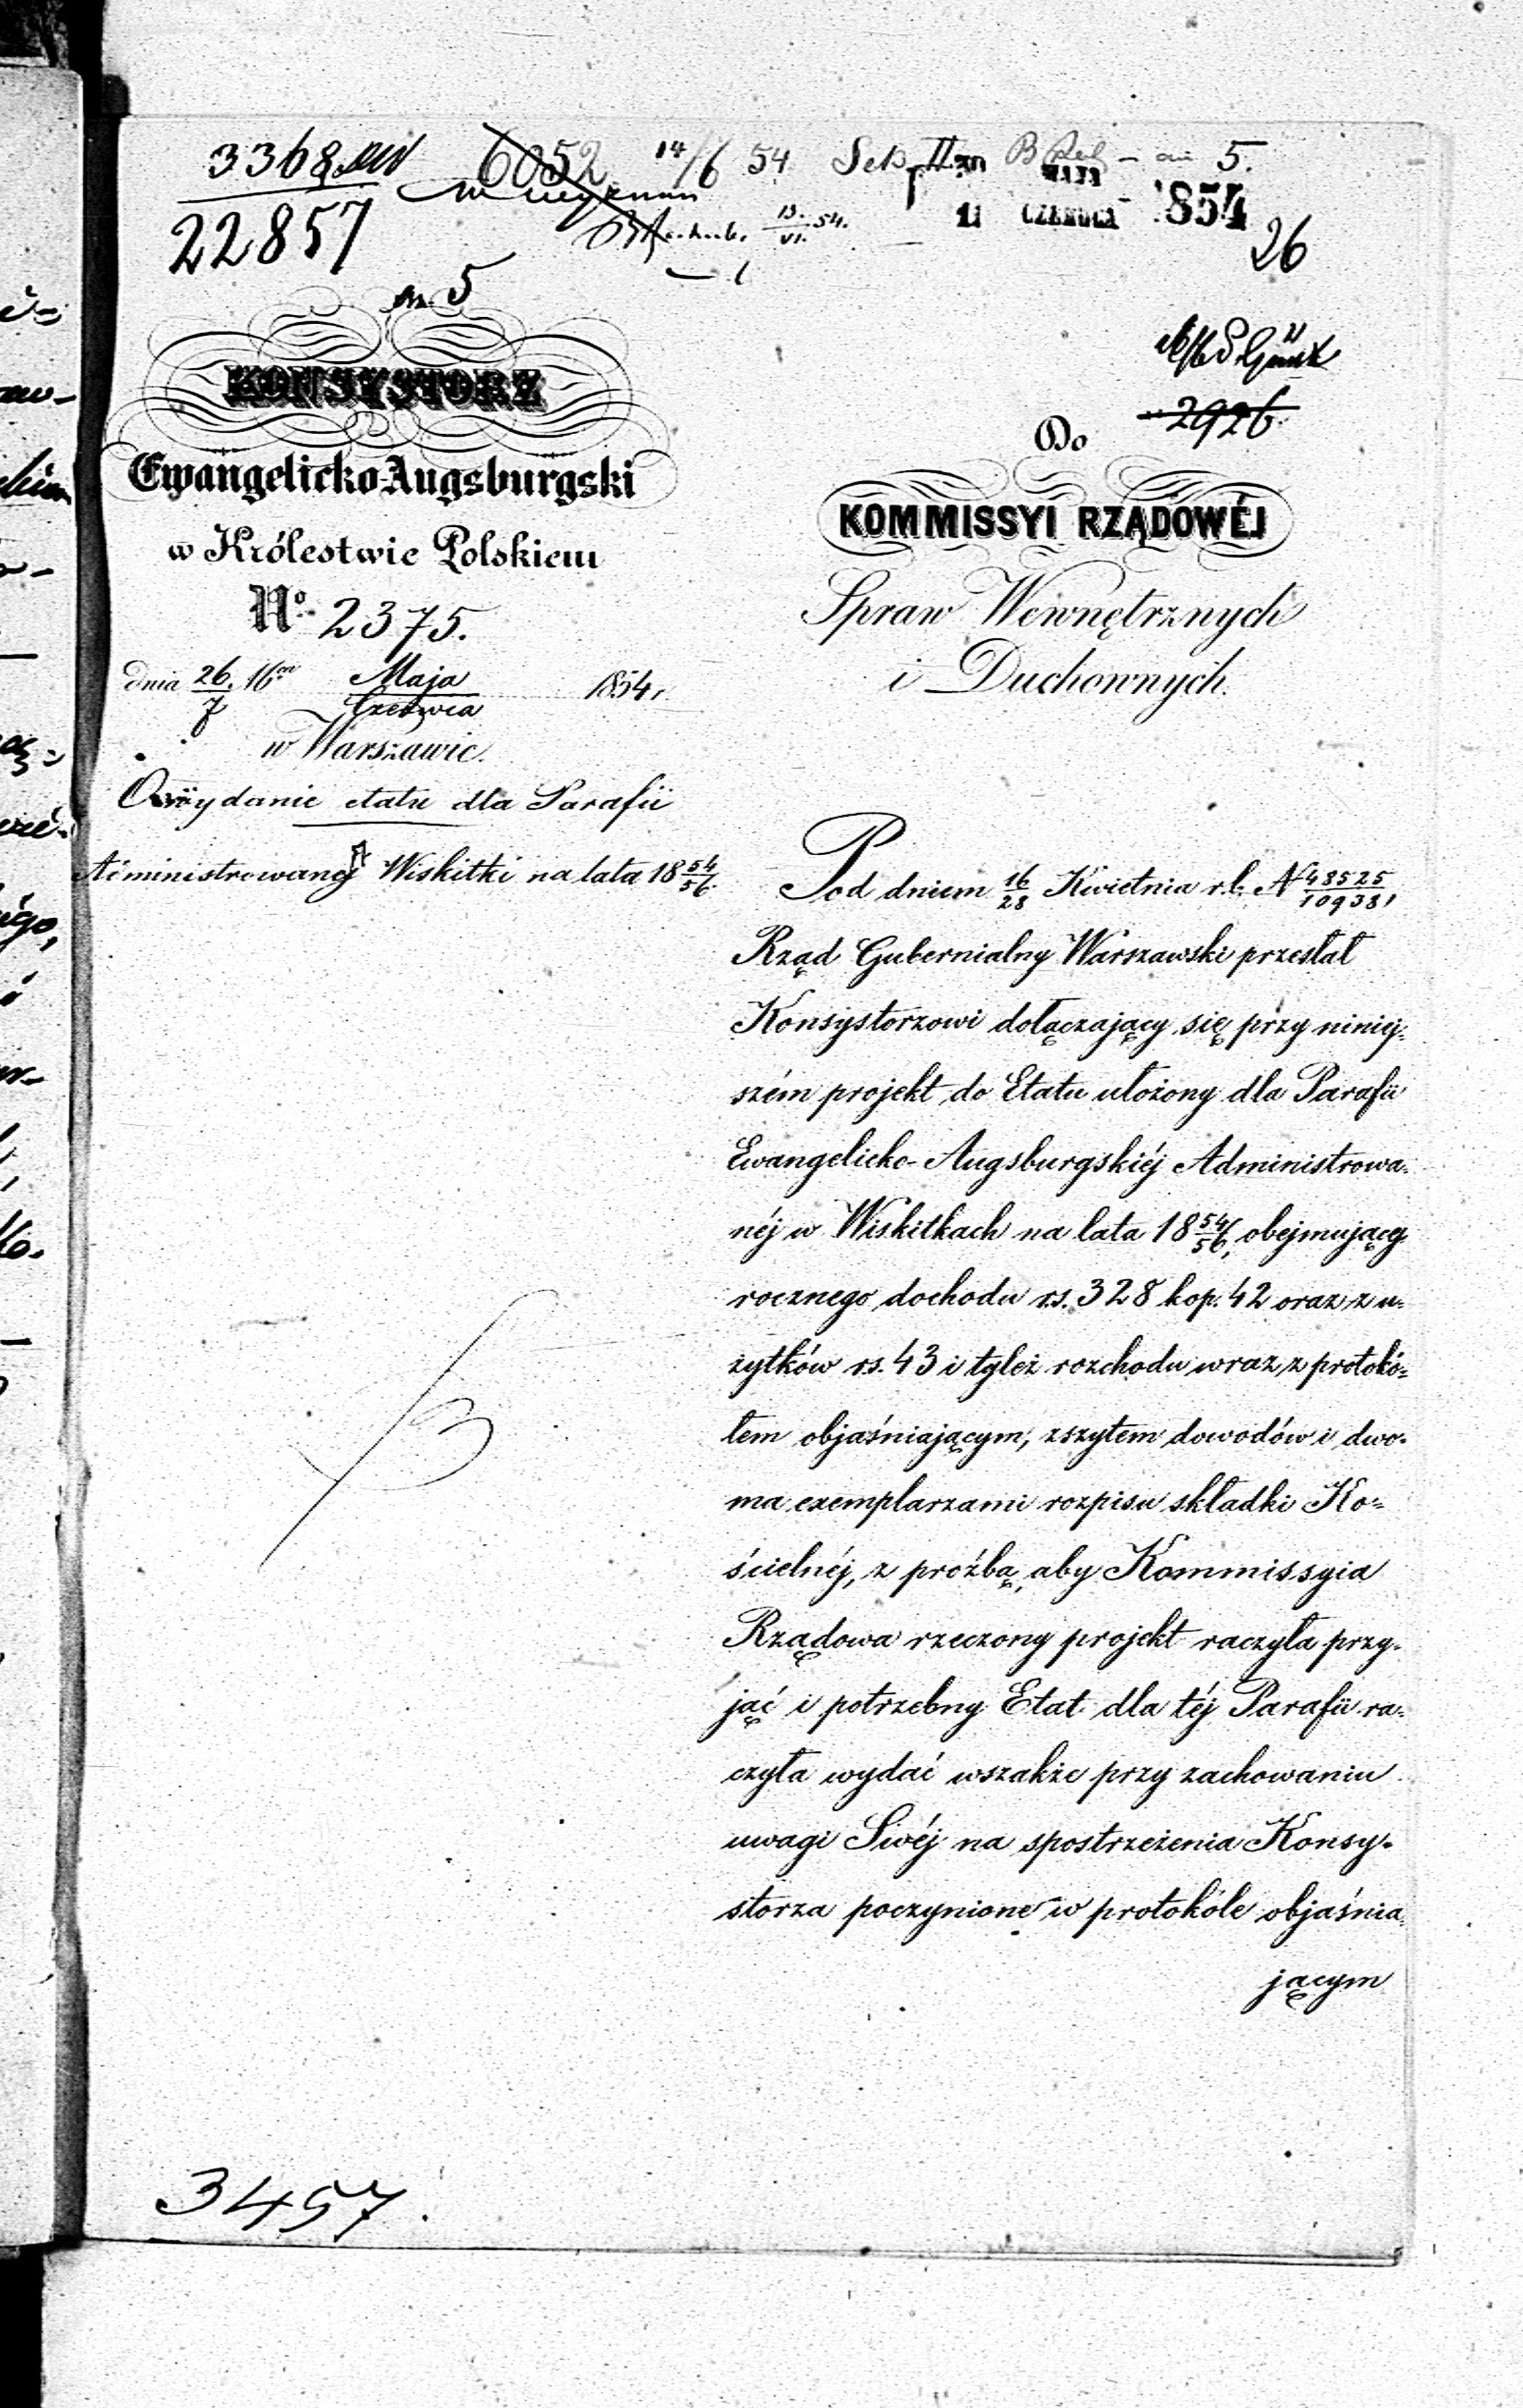 3368
22857
6052 14/6 54 Sek II 5.
MAJA
11 CZERWCA 1854
13/VI 54.
26
No 5
KONSYSTORZ
Ewangelicko-Augsburgski
w Królestwie Polskiem
No. 2375.
dnia 26/7 Maja/Czerwca 1854 r
w Warszawie.
O wydanie etatu dla Parafii
Administrowanej Wiskitki na lata 18 54/56.
2926.
Do
KOMMISSYI RZĄDOWÉJ
Spraw Wewnętrznych
i Duchownych.
Pod dniem 16/28 Kwietnia r.b. N 48525/10938,
Rząd Gubernialny Warszawski przesłał
Konsystorzowi dołączający się przy niniej-
szém projekt do Etatu ułożony dla Parafii
Ewangelicko-Augsburgskiéj Administrowa-
néj w Wiskitkach na lata 18 54/56, obejmujący
rocznego dochodu rs. 328 kop. 42 oraz z u-
żytków rs. 43 i tyleż rozchodu wraz z protokó-
łem objaśniającym, zszytem dowodów i dwo-
ma exemplarzami rozpisu składki Ko-
ścielnéj, z proźbą, aby Kommissyia
Rządowa rzeczony projekt raczyła przy-
jąć i potrzebny Etat dla téj Parafii ra-
czyła wydać wszakże przy zachowaniu
uwagi Swéj na spostrzeżenia Konsy-
storza poczynione w protokóle objaśnia-
jącym
3457.